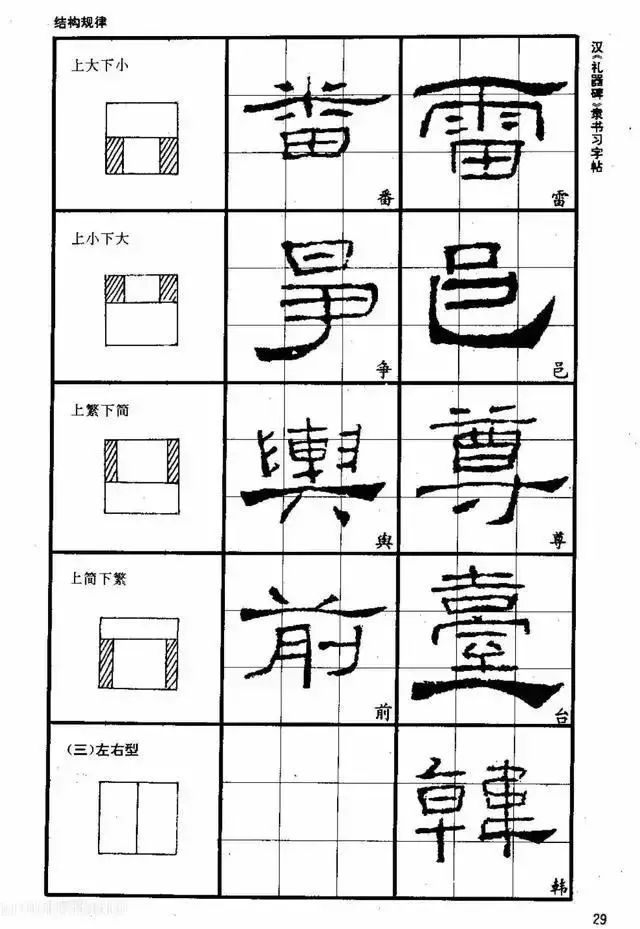 结构规律
汉《礼器碑》隶书习字帖
上大下小
番
雷
上小下大
争
邑
上繁下简
舆
尊
上简下繁
前
台
(三)左右型
韩
29